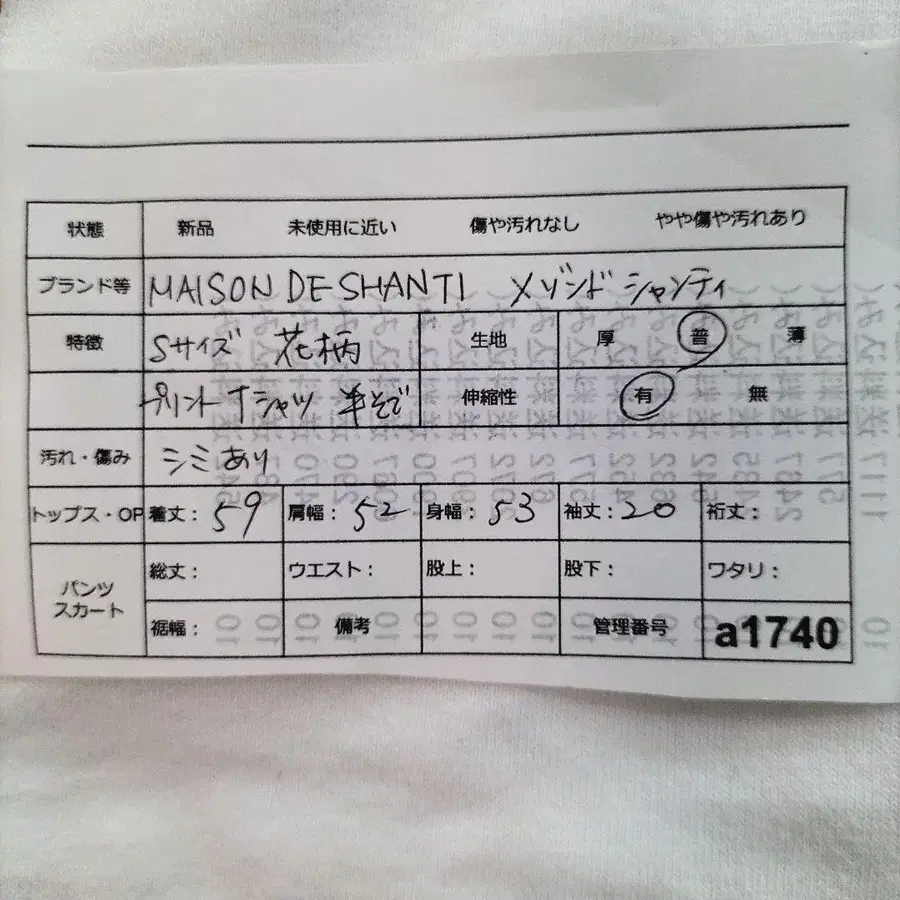 状態 新品 未使用に近い 傷や汚れなし やや傷や汚れあり
ブランド等 MAISON DE SHANTI メゾンド シャンティ
特徴 Sサイズ 花柄 生地 厚 普 薄
プリント Tシャツ 半そで 伸縮性 有 無
汚れ・傷み シミあり
トップス・OP 着丈: 59 肩幅: 52 身幅: 53 袖丈: 20 裄丈:
パンツ スカート 総丈: ウエスト: 股上: 股下: ワタリ:
裾幅: 備考 管理番号 a1740